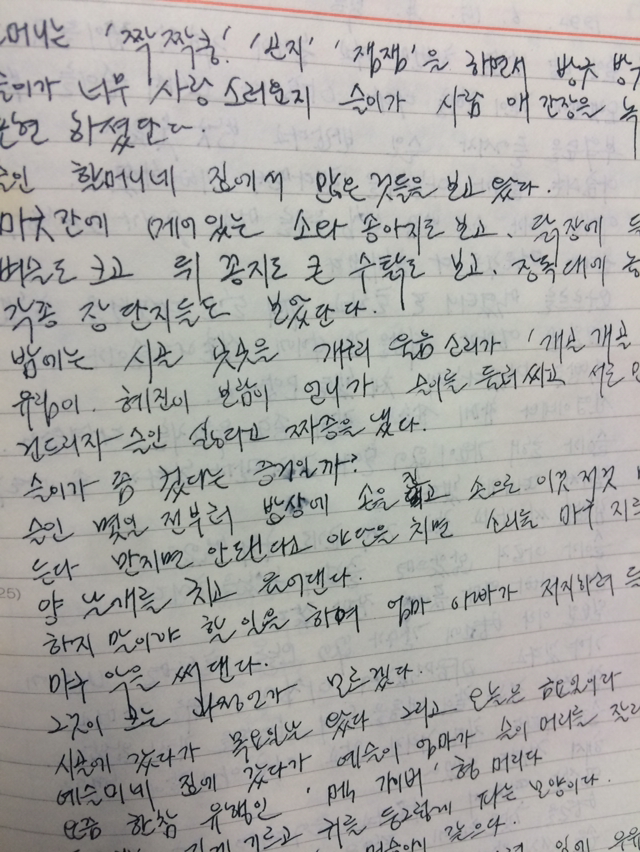 머니는 '짝짝쿵! '곤지' '잼잼'을 하면서 방긋
슬이가 너무 사랑 스러운지 슬이가 사람 애 간장을 녹
표현 하셨단다.
슬인 할머니네 집에서 많은 것들을 보고 왔다.
마굿간에 메어있는 소라 송아지도 보고, 닭장에
벼슬도 크고 뒤 꽁지도 큰 수탉도 보고, 장독대에
각종 장 단지들도 보았단다.
밤에는 시골 논 개구리 울음 소리가 '개골 개골
유림이, 혜진이 보람이 언니가 슬이를 둘러 싸고 서로
건드리자 슬인 싫다고 짜증을 냈다.
슬이가 좀 컸다는 증거일까?
슬인 몇일 전부터 밥상에 손을 짚고 손으로 이것 저것
든다 만지면 안된다고 야단을 치면 소리를 마구 지르
양 날개를 치고 울어댄다.
하지 말아야 할 일을 하여 엄마 아빠가 저지하려
마구 악을 써댄다.
그것이 크는 과정인가 모르겠다.
시골에 갔다가 목요일날 왔다 그리고 오늘은 금요일이라
예슬이네 집에 갔다가 예슬이 엄마가 슬이 머리를
요즘 한참 유행인 '멕 가이버' 형 머리다
길게 기르고 귀를 둥그렇게 파는 모양이다.
같으다.
25)